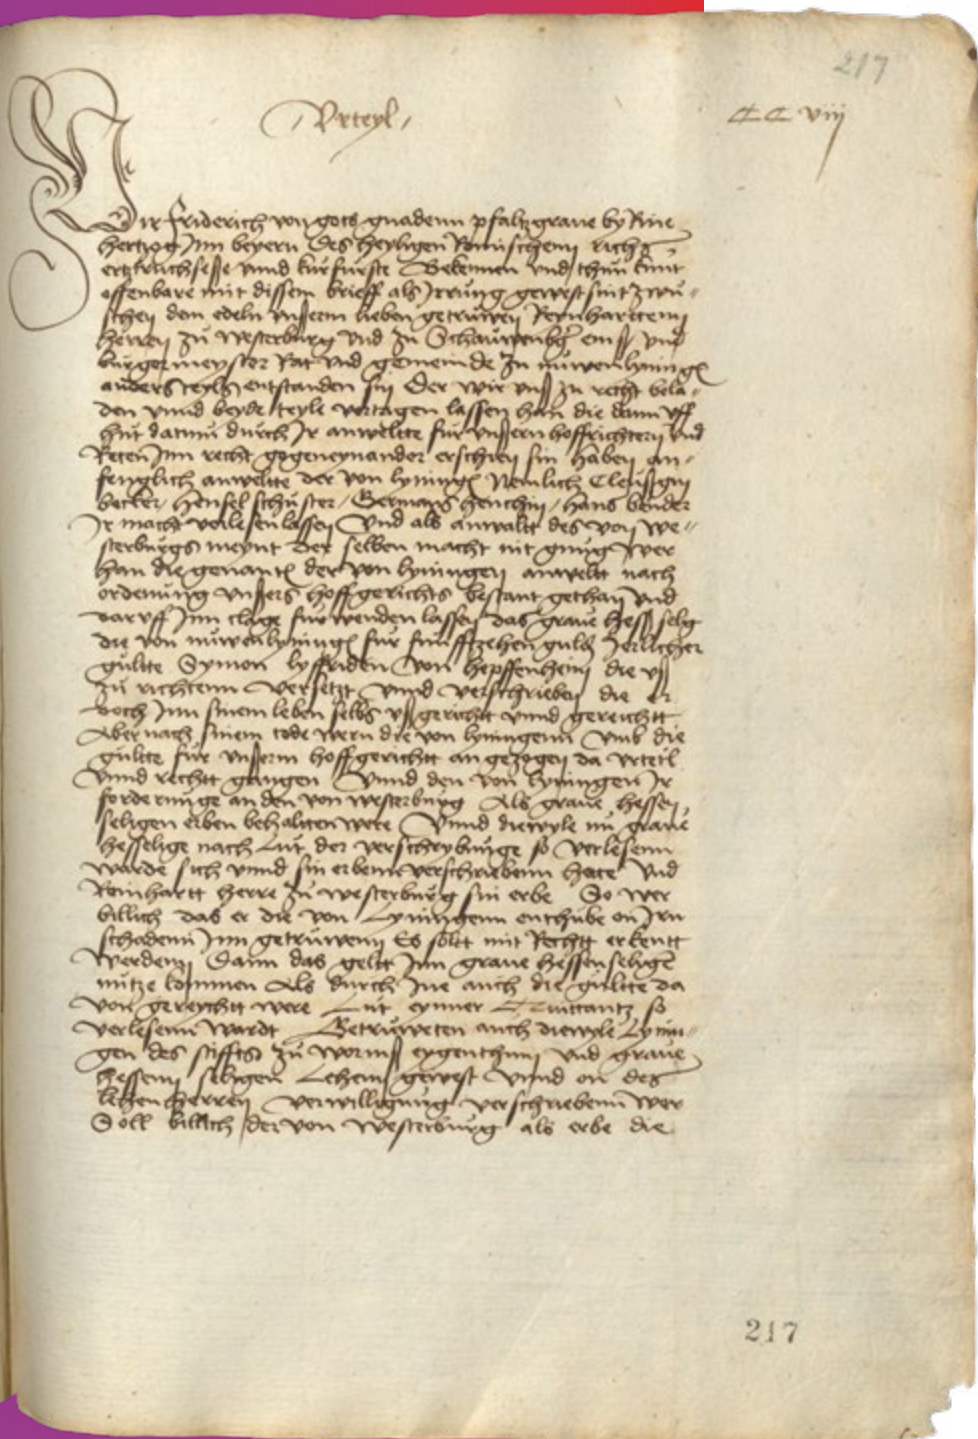 217
Vrteyl
CC viij
Wir friderich von gots gnadenn pfaltzgraue by Rine
hertzog Inn beyern des heyligen Romischenn richs
ertztruchsesse vnnd kurfurste Bekennen vnd thun kunt
offenbare mit dissem brieff als Irrung gewest sint zwu-
schen dem edeln vnserm lieben getruwen Reinhartten
herren zu Westerburg vnd zu Schauwenbg eins vnd
burgermeyster Rat vnd gemeinde zu nuwenlyninge
anders teyls entstanden sin Der wir vns zu recht bela-
den vnnd beyde teyle vertagen lassen han die dann vff
hut datum durch Ir anweltte fur vnsern hoffrichtern vnd
Reten Inn recht gegeneynander erschien sin haben an-
fenglich anwelte der von lyninge Nemlich
becker Hensel schuster Hans bender
Ir macht verlesen lassen Vnd als anwalt des von We-
sterburgs meynt der selben macht nit gnug wer
han die genante der von lyningen anwelt nach
ordenung vnsers hoffgerichts bestant gethan vnd
daruff Inn clage furwenden lassen das graue hess selig
die von nuwenlyninge fur funffzehen guld Jerlicher
gultte Symon von hepffenheim die vß
zu richtenn versetzt vnnd verschrieben die er
doch Inn sinem leben selbs vßgericht vnnd gereicht
Aber nach sinem tode wern die von lyningenn vmb die
gultte fur vnserm hoffgericht angezogen da vrteil
vnnd recht gangen Vnnd den von lyningen Ir
forderunge an den von westerburg Als graue hessen
seligen erben behalten were Vnnd diewyle nu graue
hesse selige nach Lut der verschrybunge so verlesenn
warde sich vnnd sin erbenn verschriebenn hette vnd
Reinhartt herre zu westerburg sin erbe So wer
billich das er die von Lyningenn enthube on Irn
schadenn Inn getruwenn Es soltt mit Recht erkentt
werdenn Dann das geltt Inn graue hessen seligen
nutze kommen Als durch Ine auch die gultte da
von gereycht were Lut eynner Quittantz so
verlesenn wardt Getruweten auch diewyle Lynin-
gen des stiffts zu worms eygenthum vnd graue
hessenn seligen Lehenn gewest vnnd on des
lehenherren verwilligung verschriebenn wer
Soll billich der von westerburg als erbe die
217